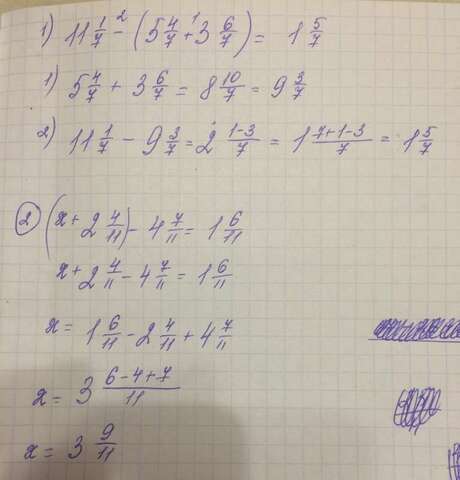 1) 11 1/7 - (5 4/7 + 3 6/7) = 1 5/7
1) 5 4/7 + 3 6/7 = 8 10/7 = 9 3/7
2) 11 1/7 - 9 3/7 = 2 (1-3)/7 = 1 (7+1-3)/7 = 1 5/7
2 (x + 2 4/11) - 4 7/11 = 1 6/11
x + 2 4/11 - 4 7/11 = 1 6/11
x = 1 6/11 - 2 4/11 + 4 7/11
x = 3 (6-4+7)/11
x = 3 9/11